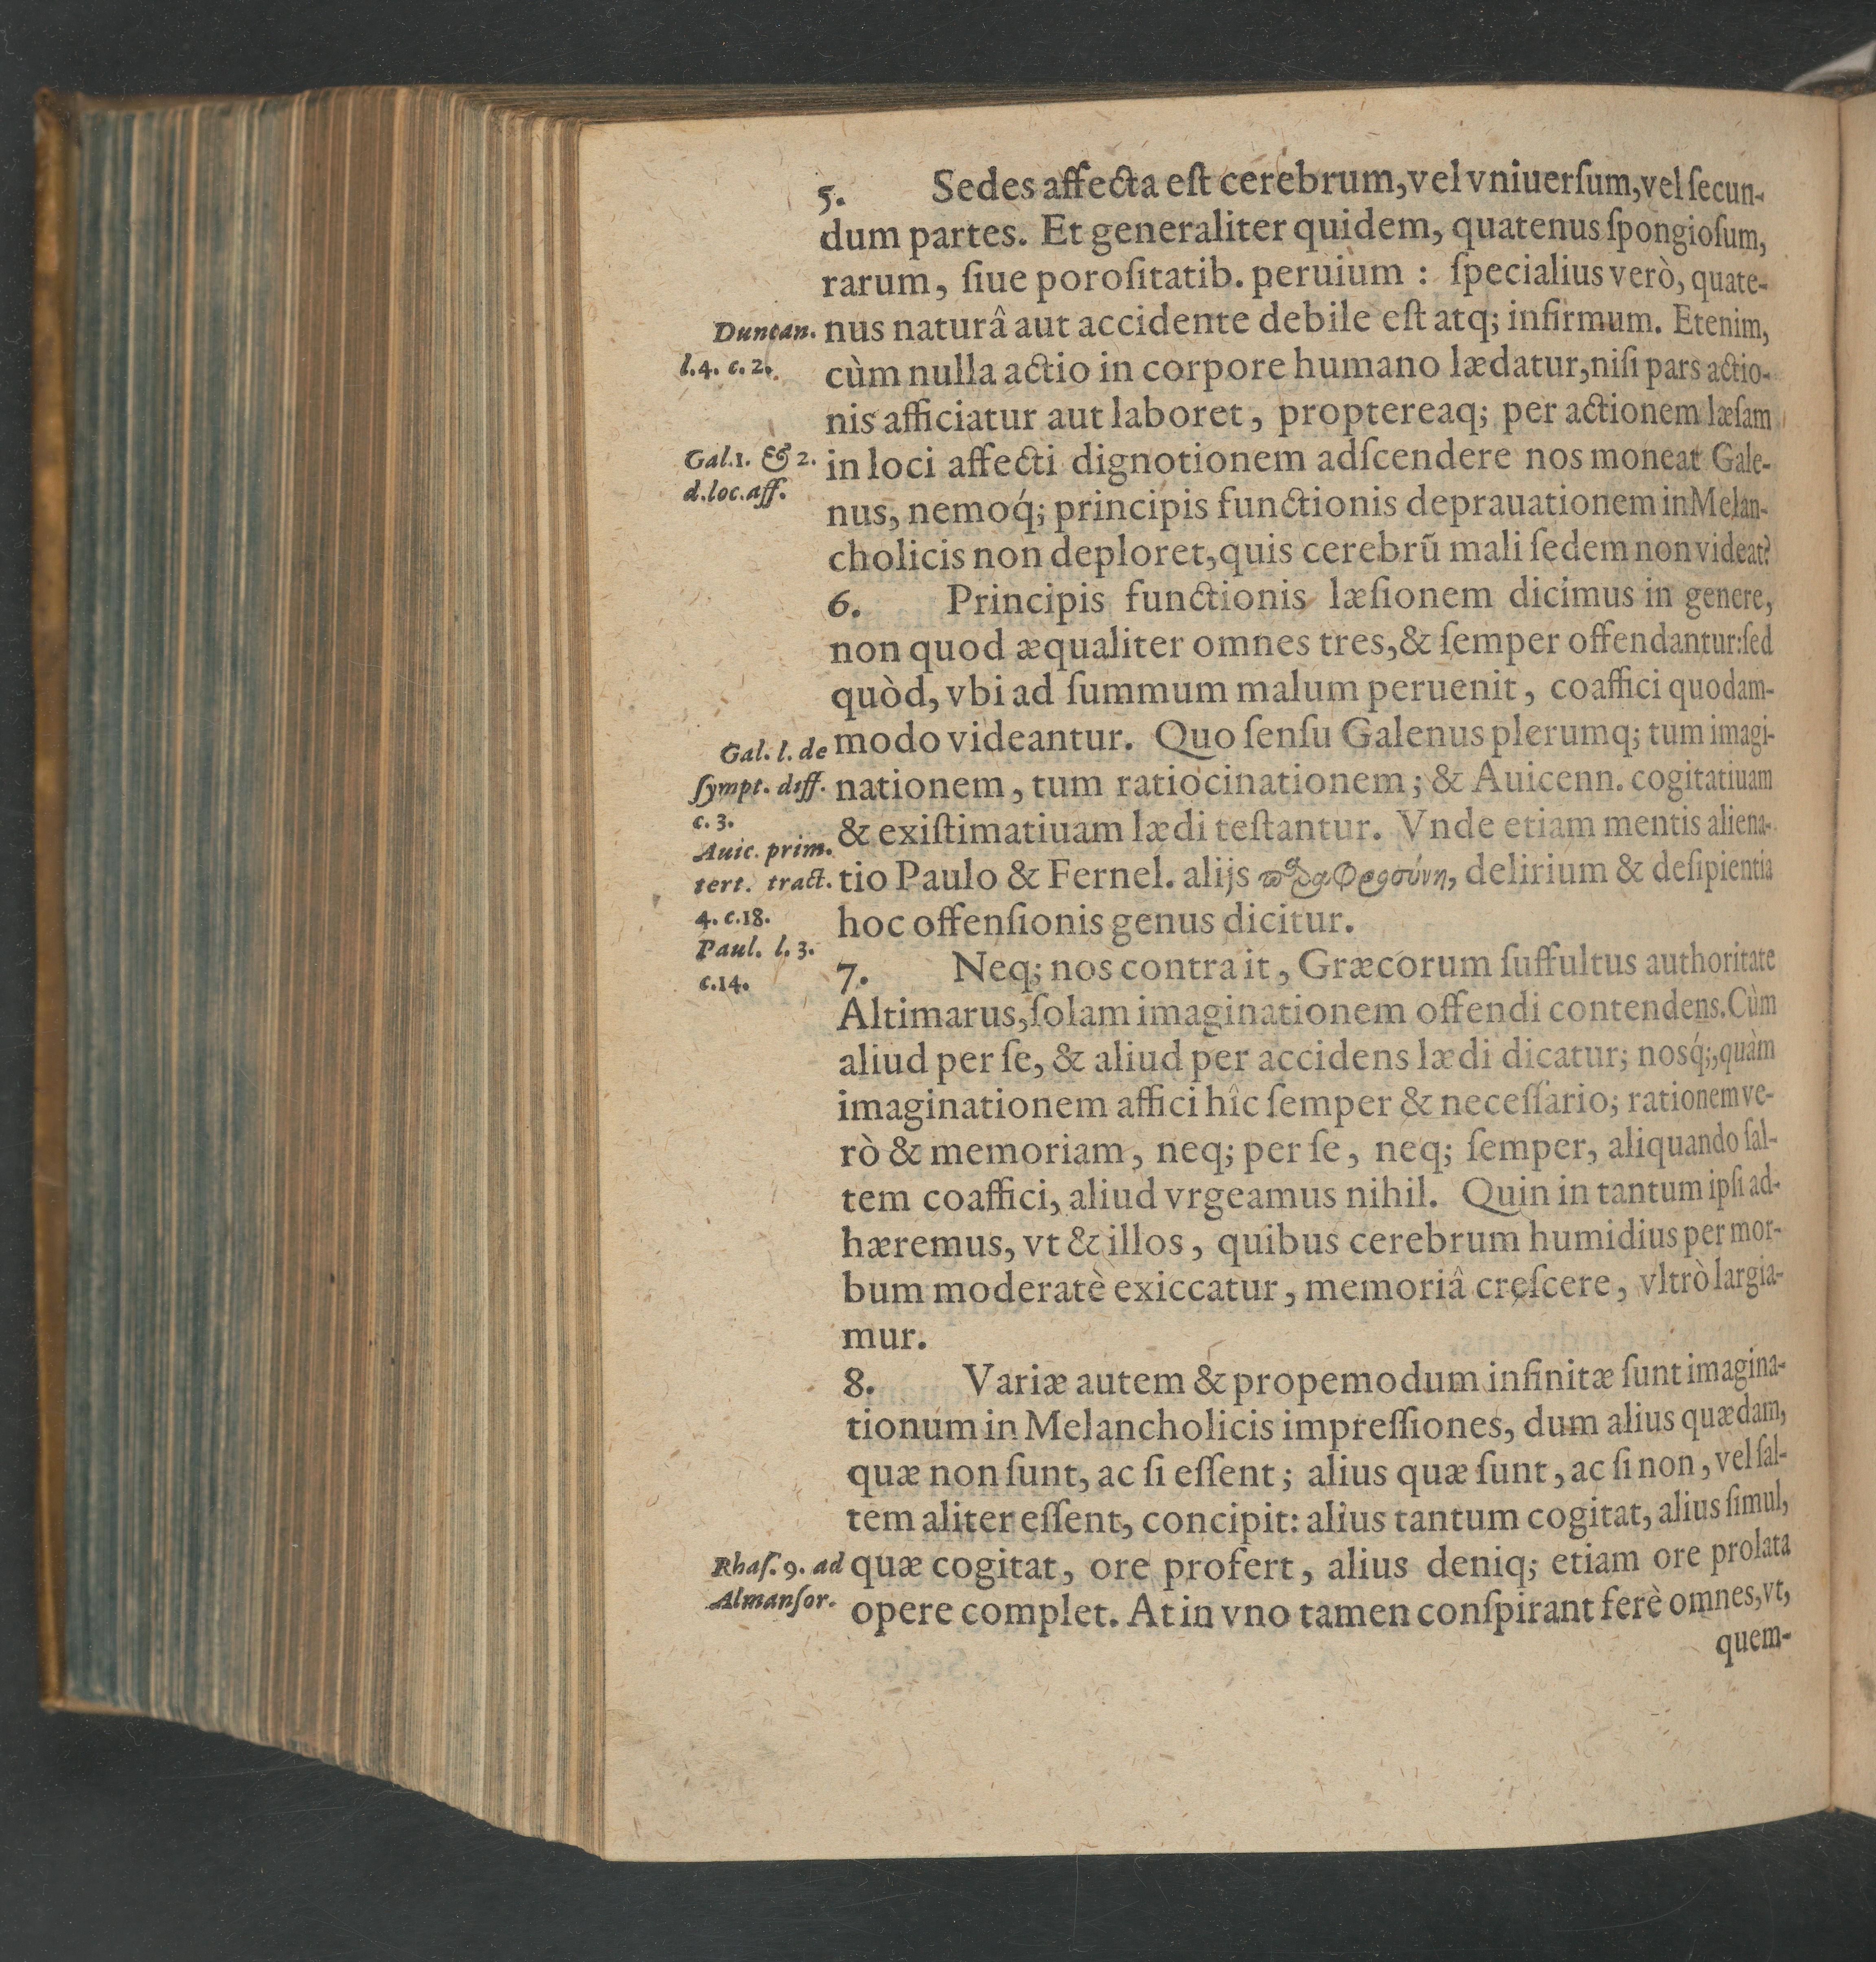 5. Sedes affecta eſt cerebrum, vel vniuerſum, vel ſecun-
dum partes. Et generaliter quidem, quatenus ſpongioſum,
rarum, ſiue poroſitatib. peruium : ſpecialius verò, quate-
Duncan.
l.4. c.2.
nus naturâ aut accidente debile eſt atq; infirmum. Etenim,
cùm nulla actio in corpore humano lædatur, niſi pars actio-
nis afficiatur aut laboret, proptereaq; per actionem læſam
Gal.1. & 2.
d.loc.aff.
in loci affecti dignotionem adſcendere nos moneat Gale-
nus, nemoq́; principis functionis deprauationem in Melan-
cholicis non deploret, quis cerebrũ mali ſedem non videat?
6. Principis functionis læſionem dicimus in genere,
non quod æqualiter omnes tres, & ſemper offendantur: ſed
quòd, vbi ad ſummum malum peruenit, coaffici quodam-
Gal. l. de
ſympt. diff.
c.3.
modo videantur. Quo ſenſu Galenus plerumq; tum imagi-
nationem, tum ratiocinationem; & Auicenn. cogitatiuam
Auic. prim.
tert. tract.
4. c.18.
& exiſtimatiuam lædi teſtantur. Vnde etiam mentis aliena-
tio Paulo & Fernel. alijs παραφροσύνη, delirium & deſipientia
hoc offenſionis genus dicitur.
Paul. l.3.
c.14.
7. Neq; nos contra it, Græcorum ſuffultus authoritate
Altimarus, ſolam imaginationem offendi contendens. Cùm
aliud per ſe, & aliud per accidens lædi dicatur; nosq́;, quàm
imaginationem affici hîc ſemper & neceſſario; rationem ve-
rò & memoriam, neq; per ſe, neq; ſemper, aliquando ſal-
tem coaffici, aliud vrgeamus nihil. Quin in tantum ipſi ad-
hæremus, vt & illos, quibus cerebrum humidius per mor-
bum moderatè exiccatur, memoriâ creſcere, vltrò largia-
mur.
8. Variæ autem & propemodum infinitæ ſunt imagina-
tionum in Melancholicis impreſſiones, dum alius quædam,
quæ non ſunt, ac ſi eſſent; alius quæ ſunt, ac ſi non, vel ſal-
tem aliter eſſent, concipit: alius tantum cogitat, alius ſimul,
Rhaſ. 9. ad
Almanſor.
quæ cogitat, ore profert, alius deniq; etiam ore prolata
opere complet. At in vno tamen conſpirant ferè omnes, vt,
quem-